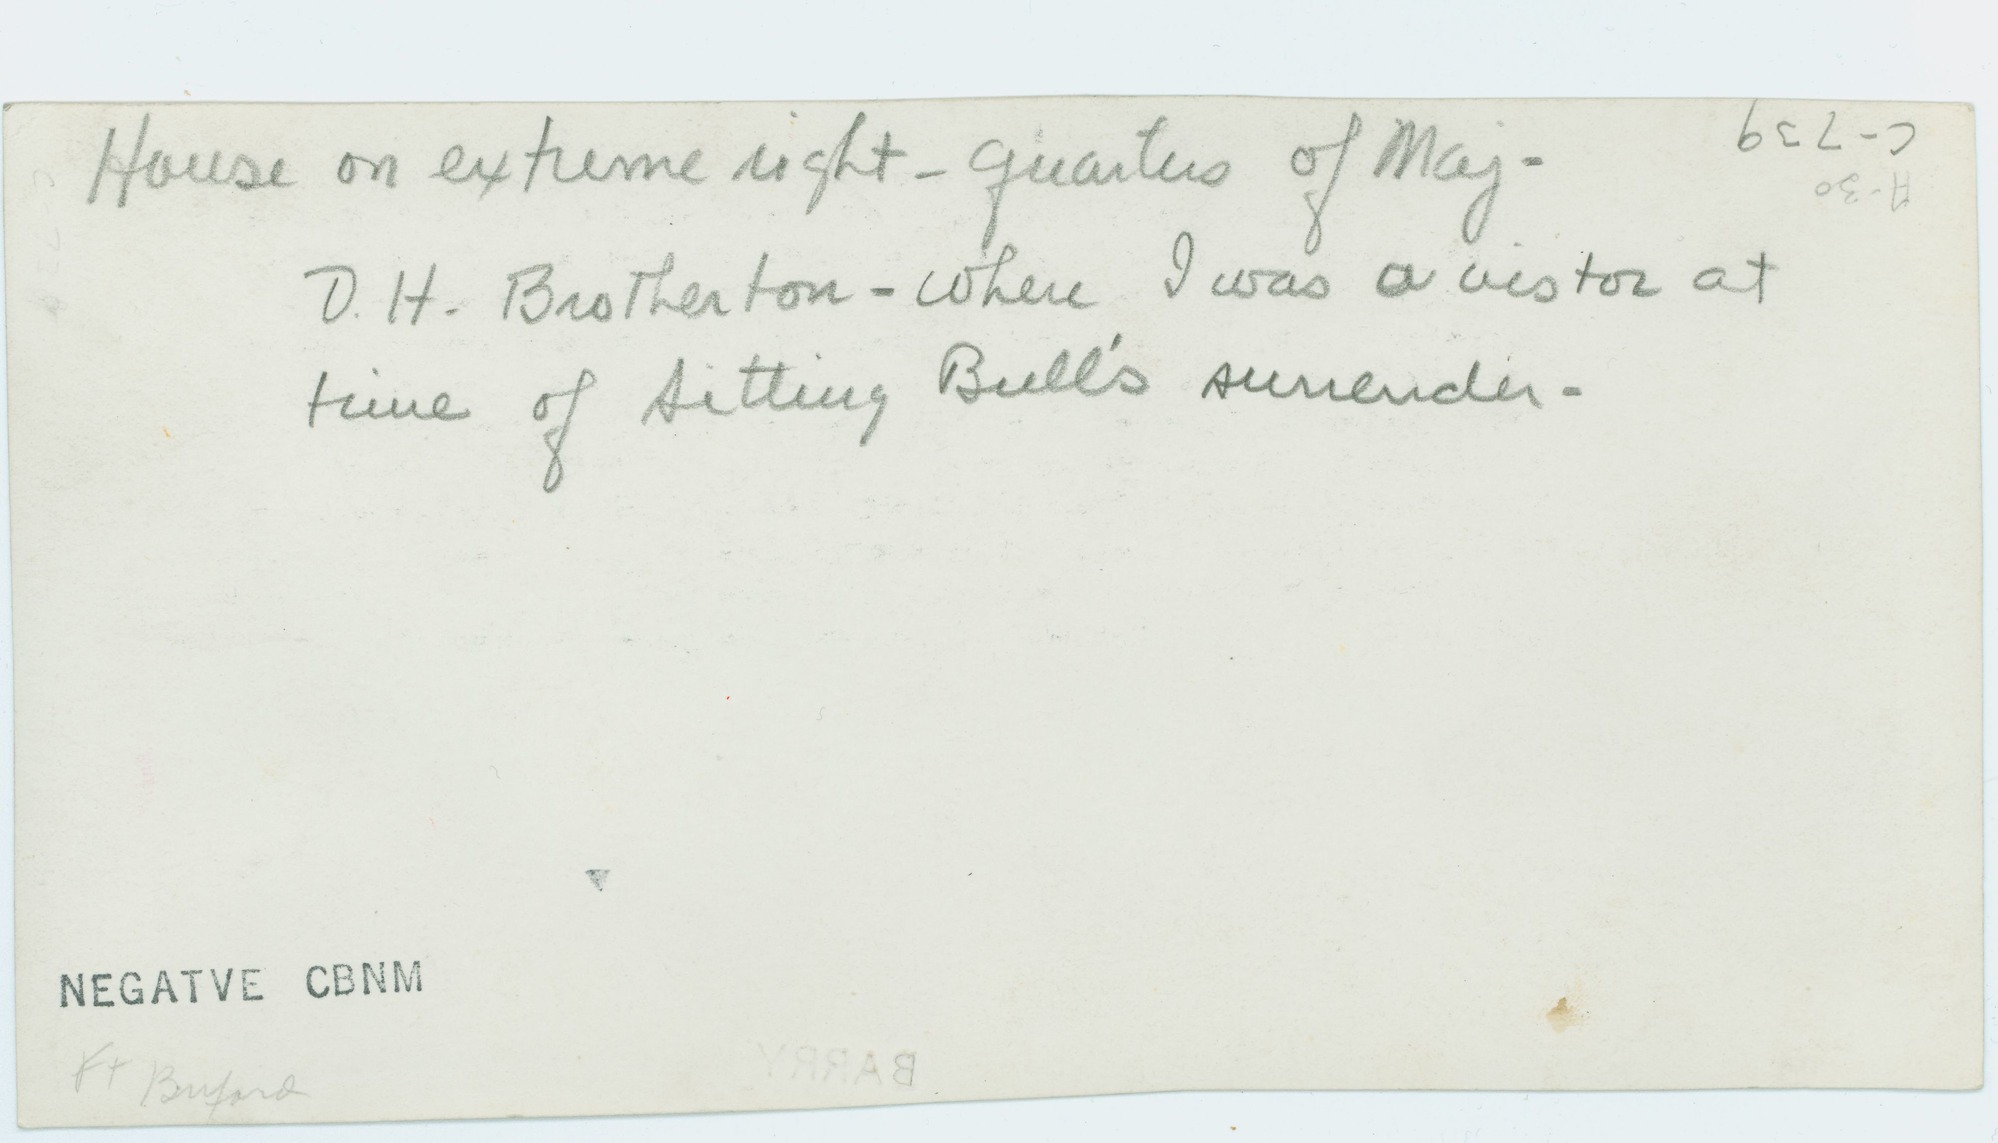 House on extreme right - quarters of Maj-
D. H. Brotherton - where I was a vistor at
time of Sitting Bull's surrender-
C-739
A-30
NEGATVE CBNM
Ft Buford
BARRY